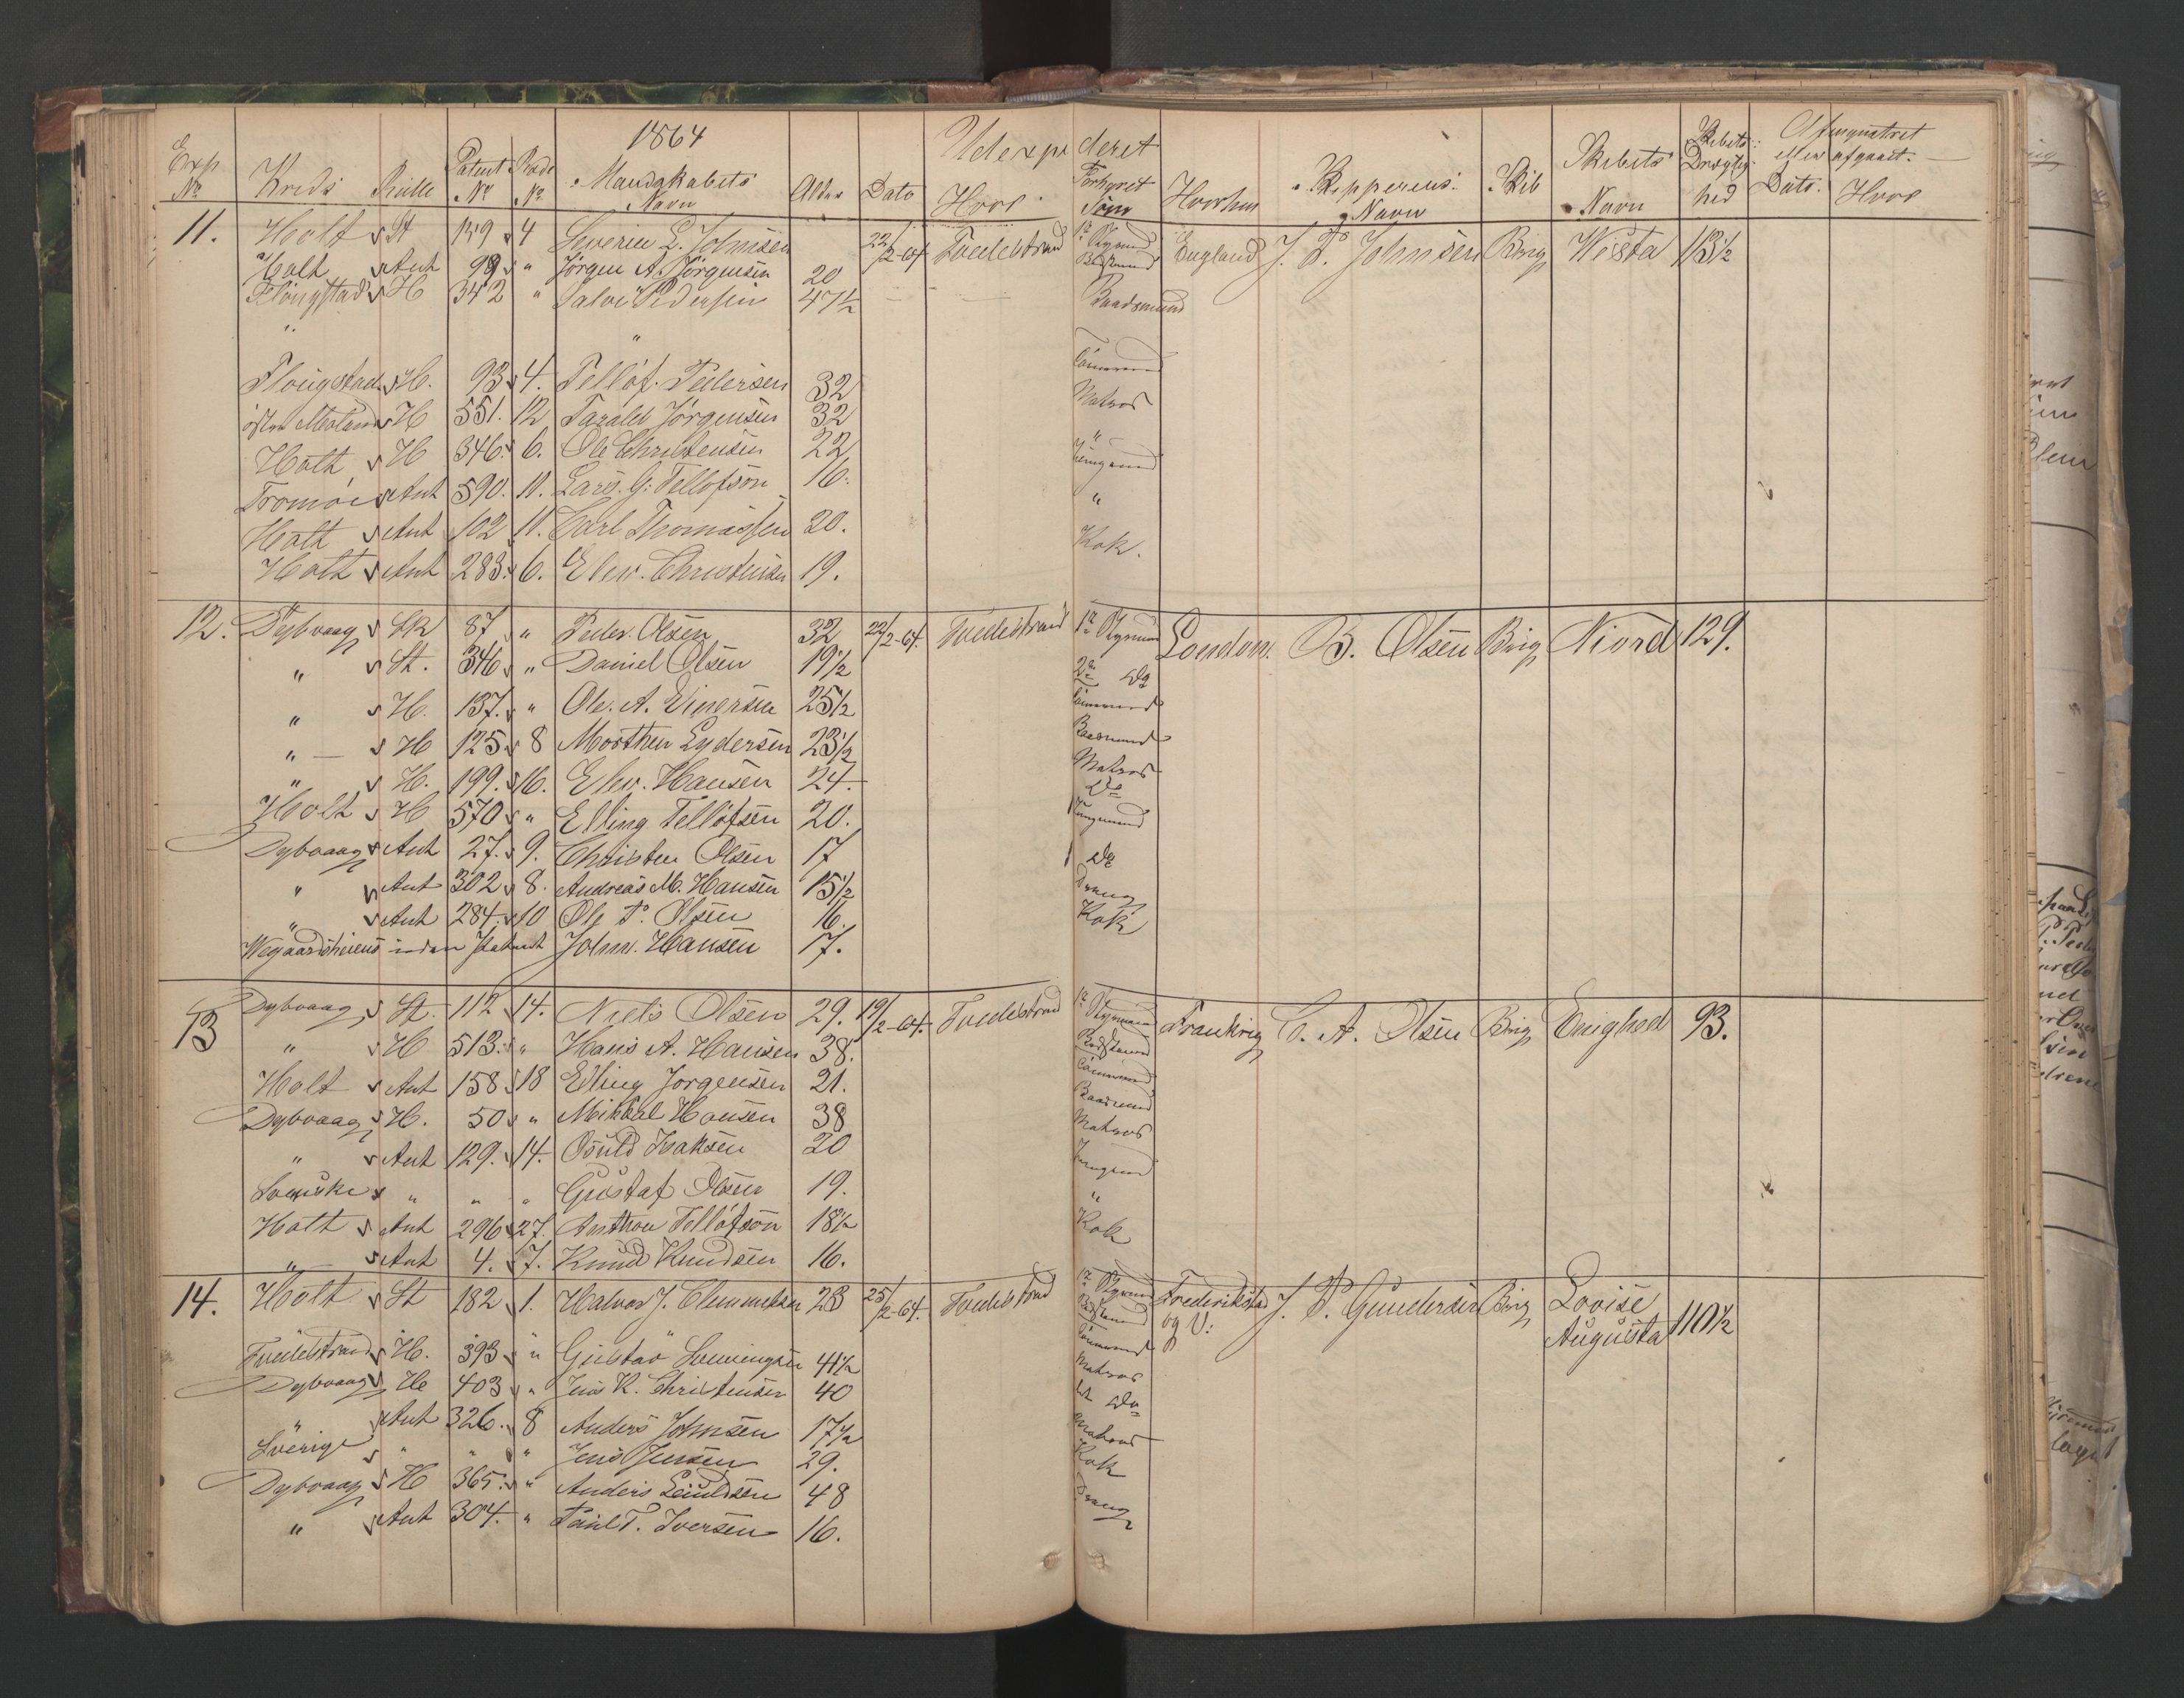 1864
Udexpe deret
Exp No Kreds Rulle Patent No Rode No Mandskabets Navn Alder Dato Hvor Forhyret Som Hvorhen Skipperens Navn Skib Skibets Navn Skibets Drægtighed Afmynstret eller afgaaet. Dato. Hvor
11. Holt St 159 4 Severin L. Johnsen 22/2-64 Tvedestrand 1ste Styrmd England J. P. Johnsen Brig Westa 113½
Holt Ant 99 " Jørgen A. Jørgensen 20 Bestmand
Flougstad H 342 " Salve Pedersen 47½ Baadsmand
" "
Flougstad H. 93 4. Tellof. Pedersen 32 Tömmermd
öster Moland H 551. 12 Tarald Jörgensen 32 Matros
Holt H 346. 6. Ole Christensen 22 "
Tromöe Ant 590. 11. Lars. G. Tellofson 16. Jüngmd
Holt Ant 102 11. Carl Thomassen 20. "
Holt Ant 283. 6. Elew. Christensen 19. Kok.
12. Dybvaag SR 87 " Peder Olsen 32 22/2-64. Tvedestrand 1ste Styrmd London. B. Olsen Brig Niord 129.
" St. 346 " Daniel Olsen 19½ 2de Do
" H. 137. " Ole. A. Einersen 25½ Tömmermd
" H 125 8 Morthen Lydersen 23½ Baadsmand
" H. 199. 16. Elew. Hansen 24. Matros
Holt H 570 " Elling Tellofsen 20. Do
Dybvaag Ant 27. 9. Christen Olsen 17 Jüngmand
" Ant 302 8. Andreas M. Hansen 15½ Do
" Ant 284. 10 Ole T. Olsen 16. Dreng
Wegaardsheiens uden Patent John. Hansen 17. Kok
13 Dybvaag St. 112 14. Niels Olsen 29. 19/2-64. Tvedestrand 1ste Styrmand Frankrig C. A. Olsen Brig Enighed 93.
" H 513. " Hans A. Hansen 38. Bestmand
Holt Ant 158 18 Elling Jorgensen 21. Tömmermd
Dybvaag H. 50 " Mikkal Hansen 38 Baadsmand
" Ant 129. 14. Osuld Isaksen 20 Matros
Svenske " " " Gustaf Olsen 19. Jungmd
Holt Ant 296 27. Anthon Tellofson 18½ "
" Ant 4. 7. Knud Knudsen 16. Kok
14. Holt St 182 1. Halvor J. Clemmetsen 23 25/2-64. Tvedestrand 1ste Styrmd Frederikstad og V: J. P. Gundersen Brig Lovise Augusta 110½
Tvedestrand H. 393 " Gustav 41½ Bestmand
Dybvaag H 403 " Jens K. Christensen 40 Tömmermd
" Ant 326. 8 Anders Johnsen 17½ Matros
Sverige " " " Jens Jensen 29. Do
Dybvaag H 365. " Anders 48 Matros
" Ant 304. " Paul T. Iversen 16. Kok
Dreng